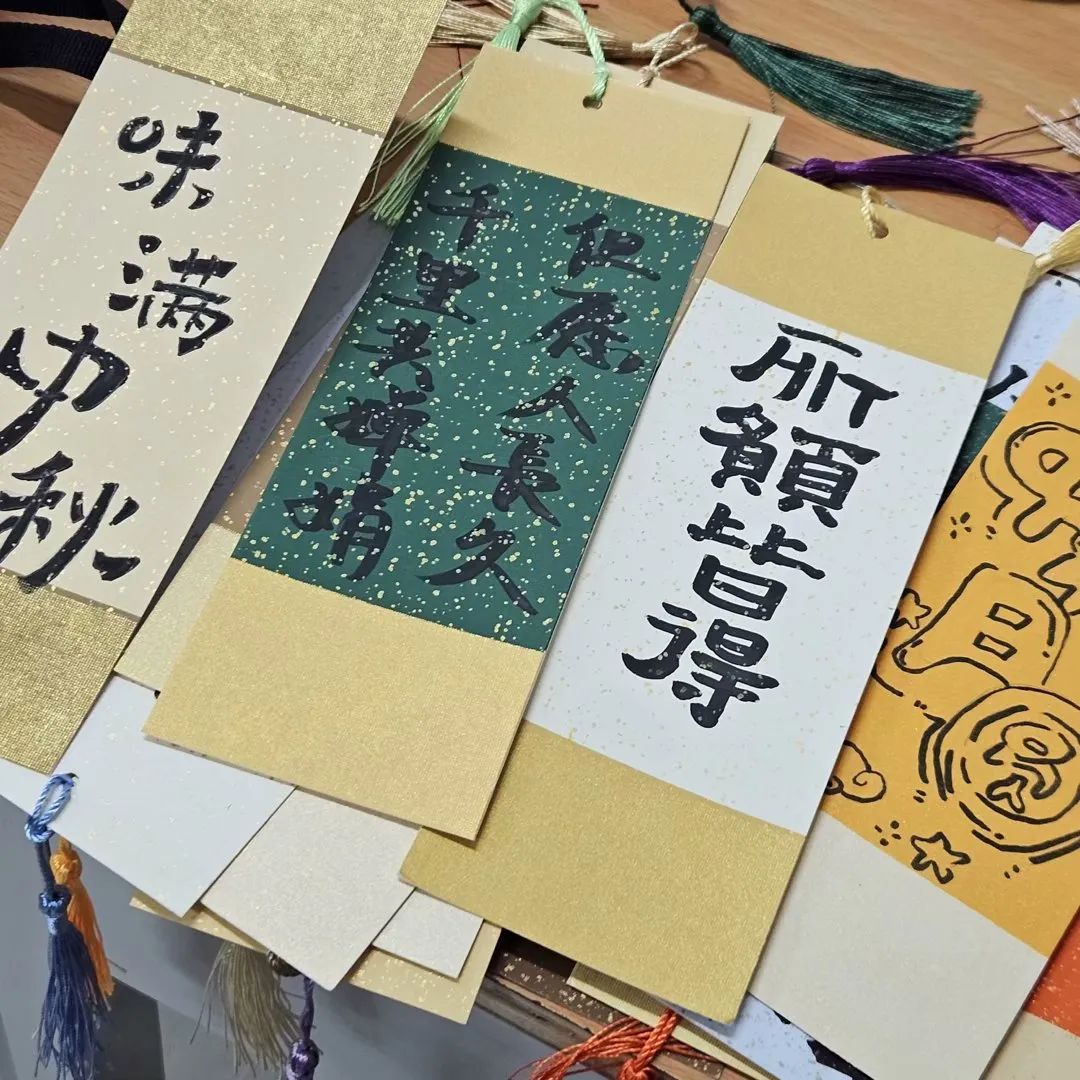 味满中秋
但愿人長久
千里共婵娟
所願皆得
月
圆